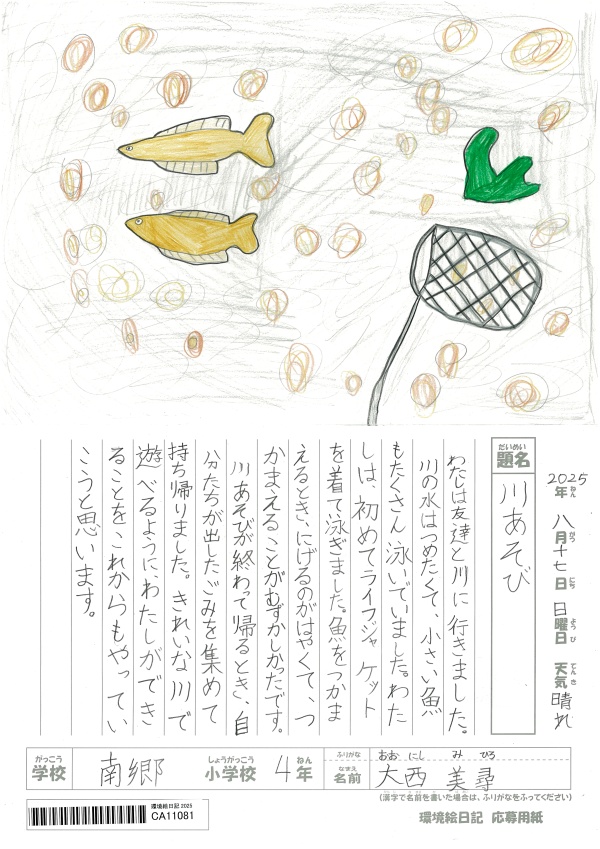 2025年 八月十七日 日曜日 天気 晴れ
ねん がつ にち ようび てんき
だいめい
題名
川あそび
わたしは友達と川に行きました。
川の水はつめたくて、小さい魚
もたくさん泳いでいました。わた
しは、初めてライフジャケット
を着て泳ぎました。魚をつかま
えるとき、にげるのがはやくて、つ
かまえることがむずかしかったです。
川あそびが終わって帰るとき、自
分たちが出したごみを集めて
持ち帰りました。きれいな川で
遊べるように、わたしができ
ることをこれからもやってい
こうと思います。
がっこう
学校
南郷
しょうがっこう
小学校
4年
ねん
ふりがな
おおにし みひろ
なまえ
名前
大西 美尋
(漢字で名前を書いた場合は、ふりがなをふってください)
環境絵日記 2025
CA11081
環境絵日記 応募用紙